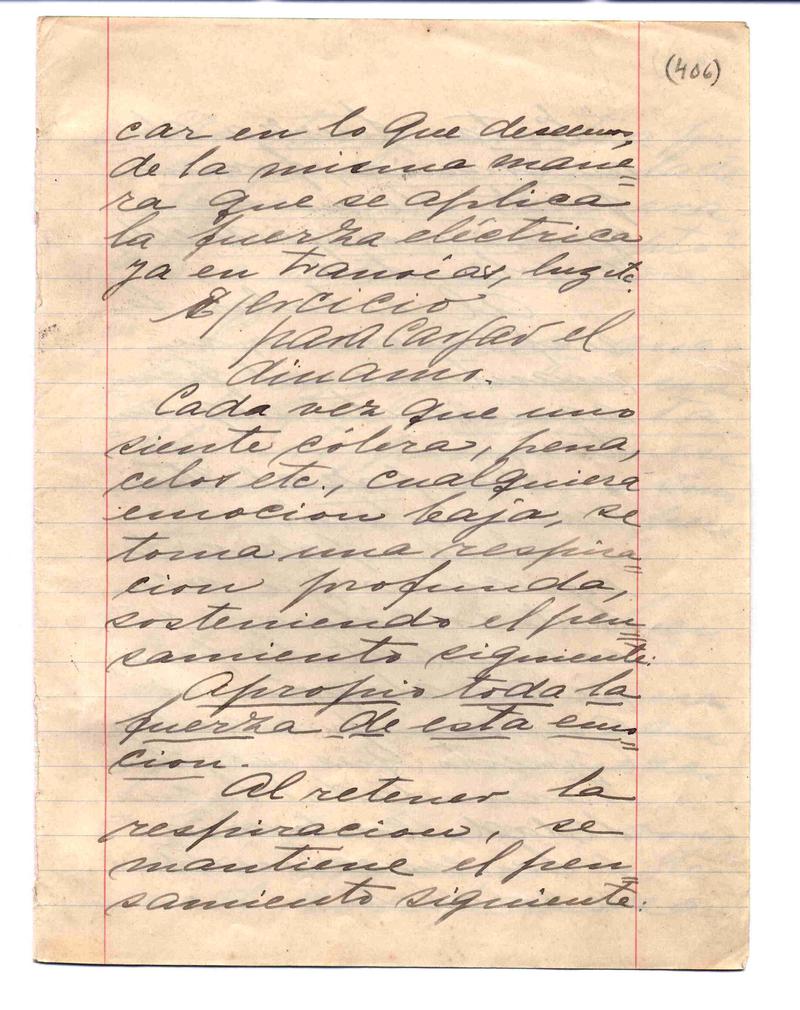 (406)
car en lo que deseemos,
de la misma mane=
ra que se aplica
la fuerza eléctrica
ya en tranvías, luz etc.
Ejercicio
para Cargar el
dinamo.
Cada vez que uno
siente cólera, pena,
celos etc., cualquiera
emocion baja, se
toma una respira=
cion profunda,
sosteniendo el pen=
samiento siguiente:
Apropio toda la
fuerza de esta emo=
cion.
Al retener la
respiracion, se
mantiene el pen=
samiento siguiente: